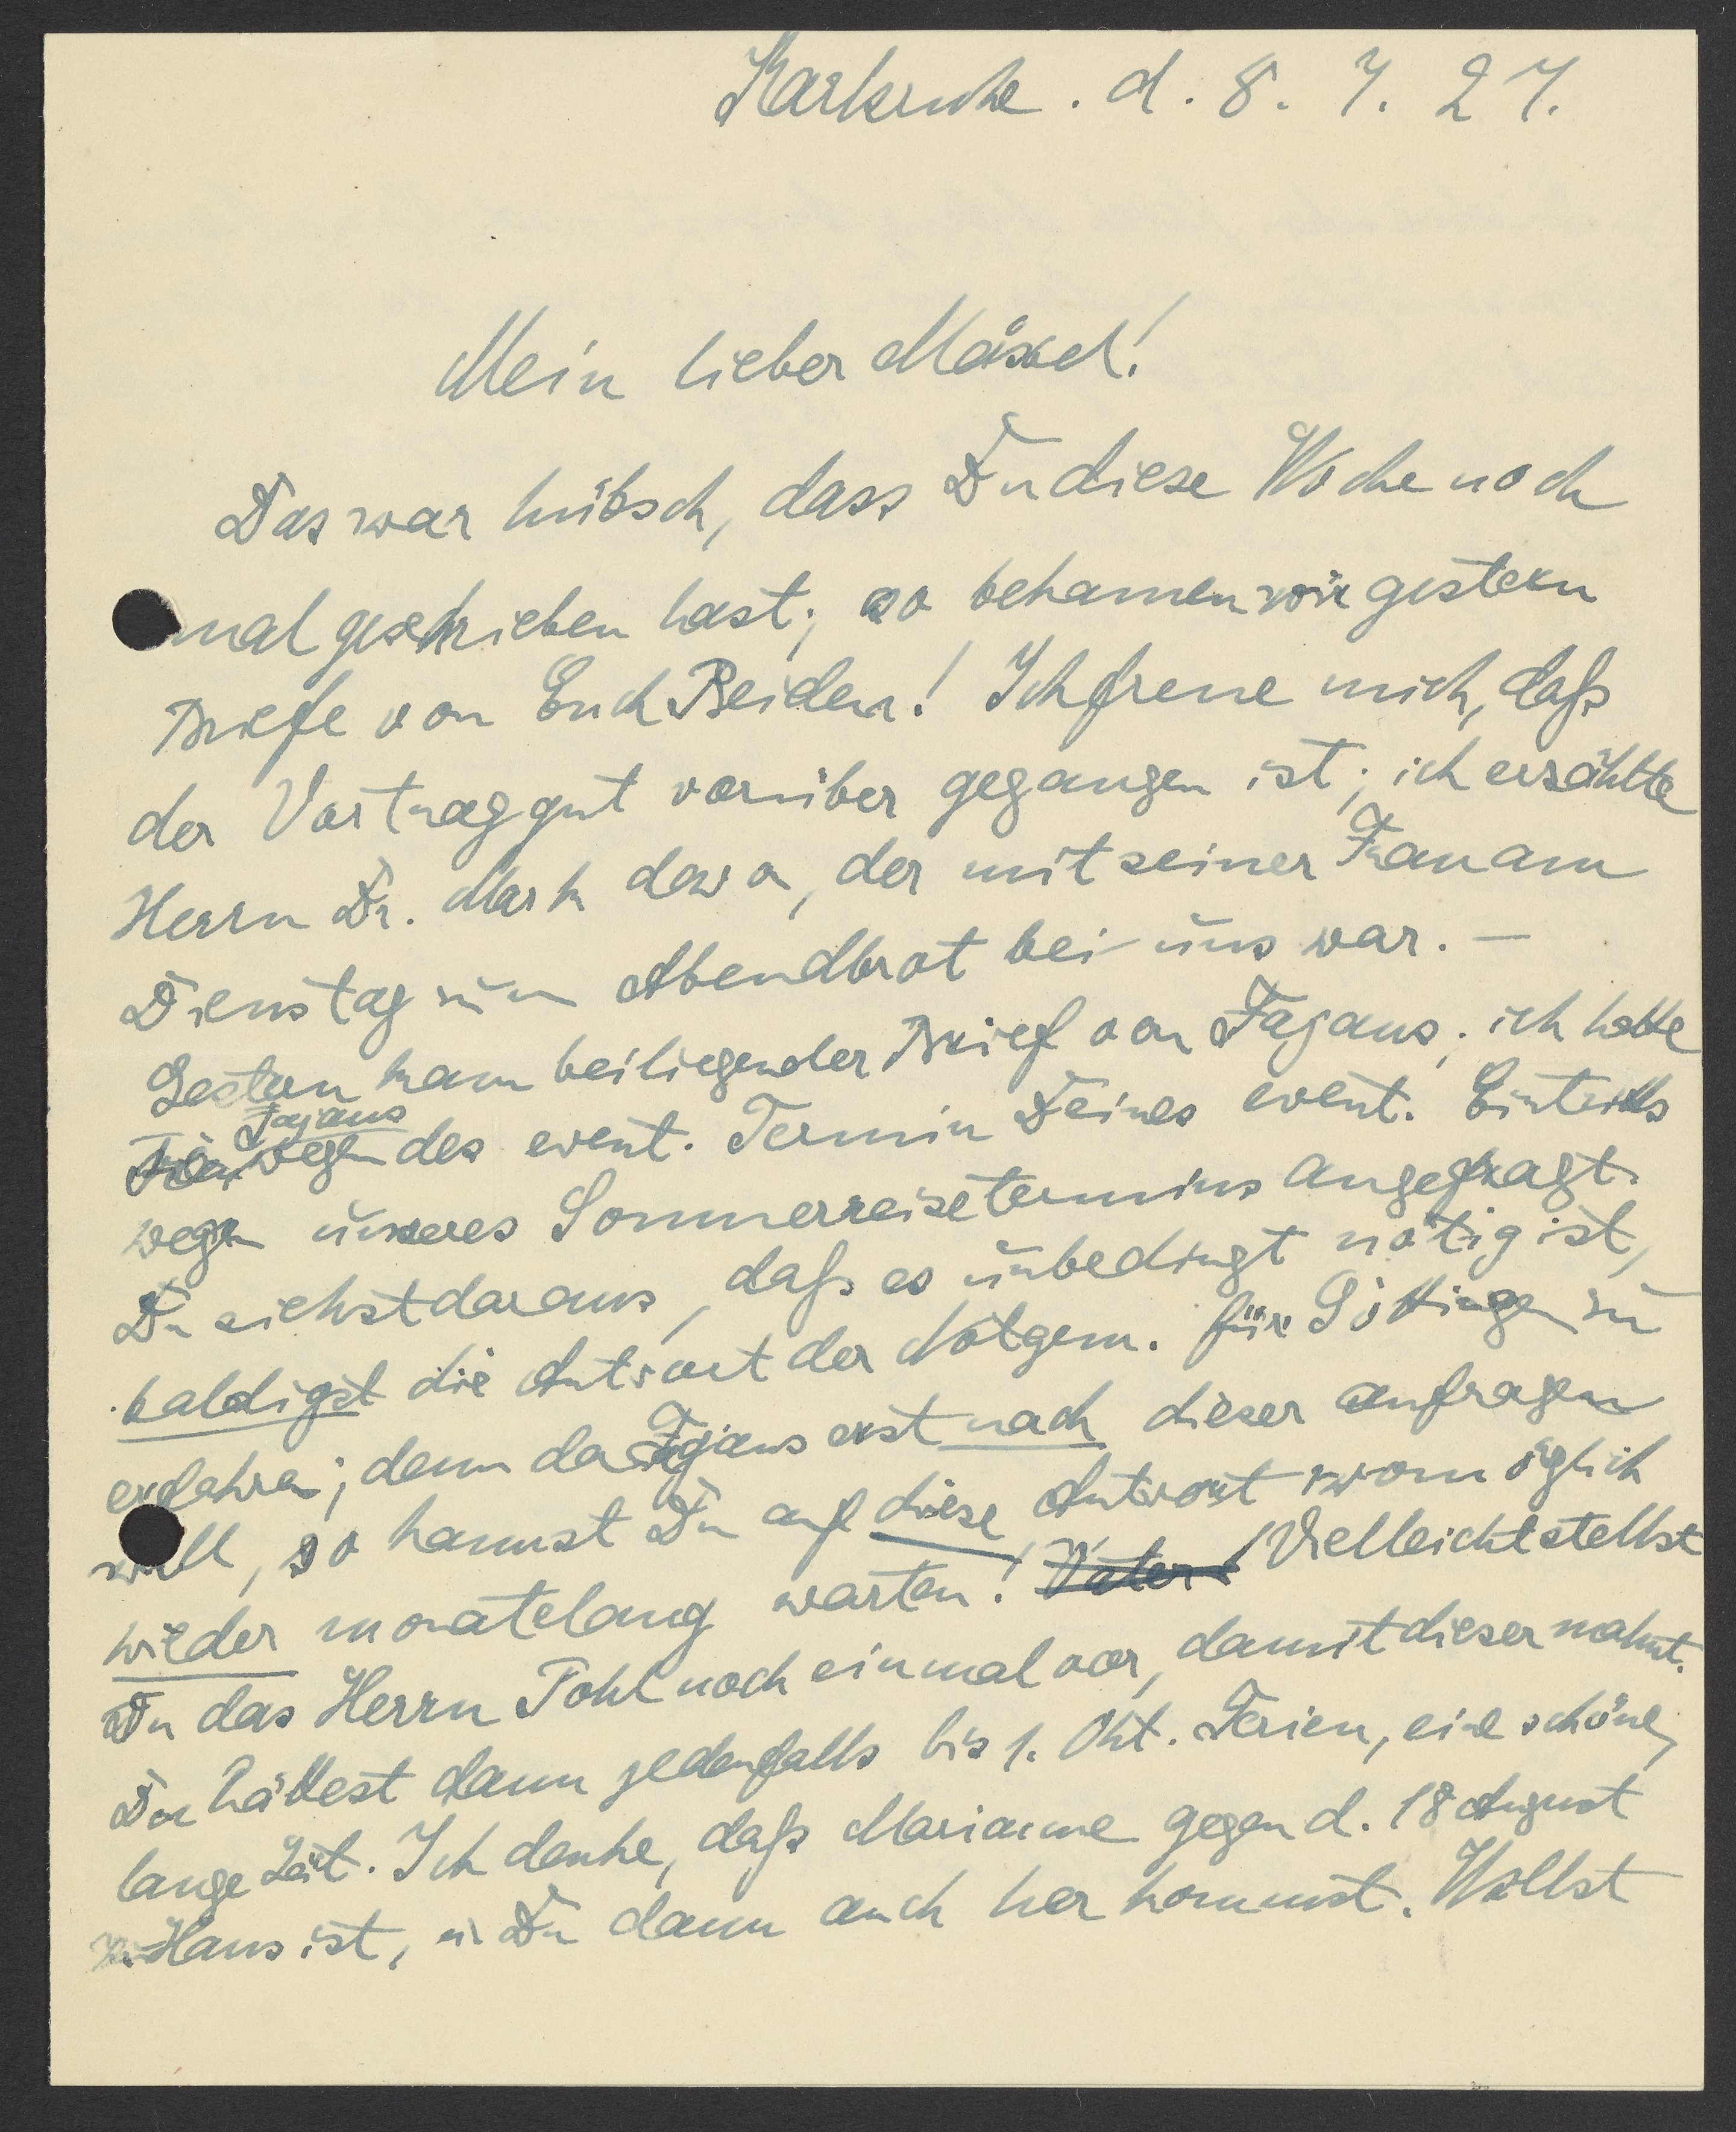 Karlsruhe. d. 8. 7. 27.
Mein lieber Mäxel!
Das war hübsch, dass Du diese Woche noch
mal geschrieben hast; so bekamen wir gestern
Briefe von Euch Beiden! Ich freue mich, daß
der Vortrag gut vorüber gegangen ist; ich erzählte
Herrn Dr. Mark davon, der mit seiner Frau am
Dienstag zum Abendbrot bei uns war. —
Gestern kam beiliegender Brief von Fajans; ich hatte
Fajans
wegen des event. Termin Deines event. Eintritts
wegen unseres Sommerreisetermins angefragt.
Du siehst daraus, daß es unbedingt nötig ist,
baldigst die Antwort der Notgem. für Göttingen zu
erfahren; denn da Fajans erst nach dieser anfragen
will, so kannst Du auf diese Antwort womöglich
wieder monatelang warten! Vater Vielleicht stellst
Du das Herrn Pohl noch einmal vor, damit dieser mahnt.
Du hättest dann jedenfalls bis 1. Okt. Ferien, eine schöne,
lange Zeit. Ich denke, daß Marianne gegen d. 18 August
zu Haus ist, u. Du dann auch her kommst. Willst